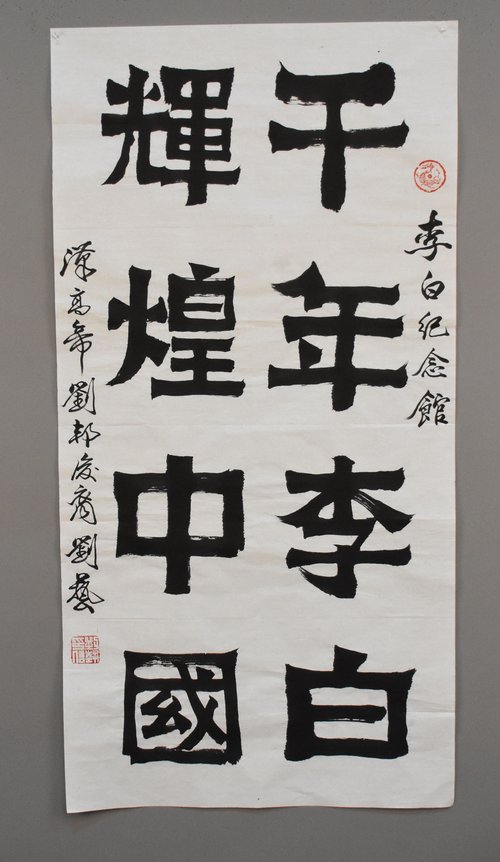 李白紀念館
千年李白
輝煌中國
漢高帝劉邦後裔劉藝